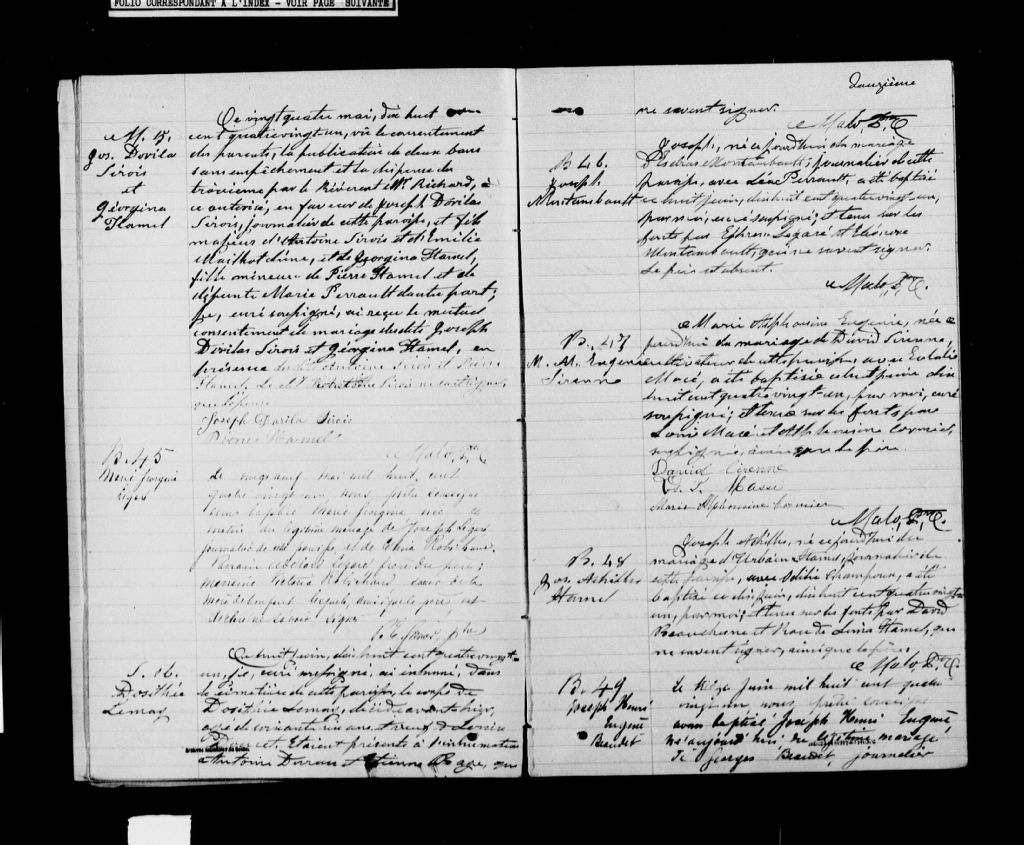 FOLIO CORRESPONDANT A L'INDEX - VOIR PAGE SUIVANTE
M. 15.
Jos. Dovila
Sirois
et
Géorgina
Hamel
Ce vingt quatre mai, dix huit
cent quatrevingt un, vû le consentement
des parents, la publication de deux bans
sans empêchement et la dispense du
troisième par le Révérent Mr. Richard, à
ce autorisé, en faveur de Joseph Dovilas
Sirois, journalier de cette paroisse, et fils
majeur d'Antoine Sirois et d'Emilie
et de Georgina Hamel,
fille mineure de Pierre Hamel et de
défunte Marie Perrault d'autre part;
je, curé soussigné, ai reçu le mutuel
consentement de mariage desdits Joseph
Dovilas Sirois et Géorgina Hamel, en
présence Antoine Sirois et Pierre
Hamel. Le dit Antoine Sirois ne sait signer,
Joseph Dovila Sirois
Pierre Hamel
Malo, Ptre
B. 45
Marie
Légaré
Le vingt neuf mai mil huit cent
quatre vingt un, nous prêtre soussigné
avons baptisé Marie née ce
matin du légitime mariage de Joseph Légaré
journalier de cette paroisse et de Robichaud.
Parrain Légaré frère du père;
marraine Victoria Robichaud soeur de la
mère de l'enfant lesquels, ainsi que le père, ont
déclaré ne savoir signer
ptre
S. 16.
Dosithée
Lemay
Ce huit juin, dix huit cent quatrevingt-
un, je, curé soussigné, ai inhumé, dans
le cimetière de cette paroisse, le corps de
Dosithée Lemay, décédé avant hier,
Etaient présents à l'inhumation
Antoine et Etienne qui
Douzième
ne savent signer.
Malo, Ptre
B. 46.
Joseph
Montambault
Joseph, né aujourd'hui du mariage
d'Esdras Montambault, journalier de cette
paroisse, avec Léa Perrault, a été baptisé
ce huit juin, dix huit cent quatrevingt un,
par moi, curé soussigné; et tenu sur les
fonts par Ephrem Légaré et Eléonore
Montambault, qui ne savent signer.
Le père est absent.
Malo, Ptre.
B. 47
M. M. Eugénie
Sirenne
Marie Alphonsine Eugénie, née
aujourd'hui du mariage de David Sirenne,
cultivateur de cette paroisse, avec Eulalie
Macé, a été baptisée ce huit juin dix
huit cent quatre vingt-un, par moi, curé
soussigné; et tenue sur les fonts par
Louis Macé et Alphonsine Cormier,
soussignés, ainsi que le père.
David Cirenne
Ls. T. Masse
Marie Alphonsine Cormier
Malo, Ptre.
B. 48
Jos. Achille
Hamel
Joseph Achille, né aujourd'hui du
mariage d'Urbain Hamel, journalier de
cette paroisse, avec Odilie Champoux, a été
baptisé ce dix juin, dix huit cent quatre vingt
un, par moi; et tenu sur les fonts par David
Beauchesne et Rose de Lima Hamel, qui
ne savent signer, ainsi que le père.
Malo, Ptre
B. 49
Joseph Henri
Eugène
Beaudet
Le treize juin mil huit cent quatre
vingt un nous prêtre soussigné
avons baptisé Joseph Henri Eugène
né aujourd'hui, du légitime mariage
de Georges Beaudet, journalier